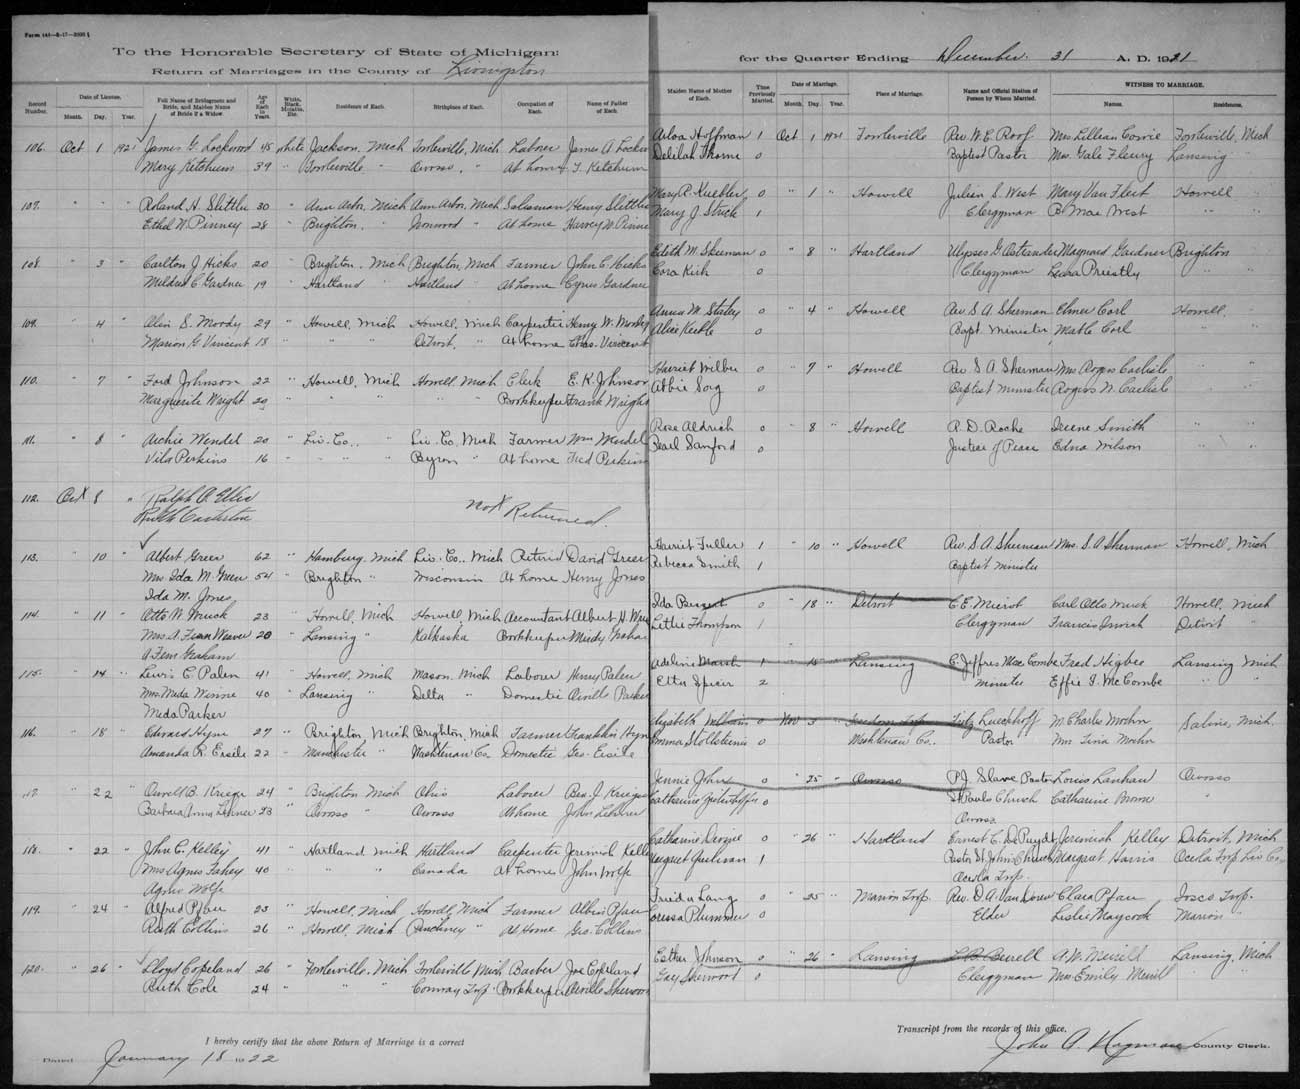 Form 141—8-17—2000
To the Honorable Secretary of State of Michigan:
Return of Marriages in the County of Livingston
for the Quarter Ending December 31 A. D. 1921
Record Number.
Date of License.
Month. Day. Year.
Full Name of Bridegroom and Bride, and Maiden Name of Bride if a Widow.
Age of Each in Years.
White, Black, Mulatto, Etc.
Residence of Each.
Birthplace of Each.
Occupation of Each.
Name of Father of Each.
Maiden Name of Mother of Each.
Times Previously Married.
Date of Marriage.
Month. Day. Year.
Place of Marriage.
Name and Official Station of Person by Whom Married.
WITNESS TO MARRIAGE.
Names. Residences.
106. Oct 1 1921 James G. Lockwood 45 white Jackson, Mich Fowlerville, Mich Laborer James A. Hoffman 1 Oct 1 1921 Fowlerville Rev. W. E. Roof Mrs Lillian Fowlerville, Mich
Mary Ketchum 39 " Fowlerville Owosso, " At home T. Ketchum Delilah 0 Baptist Pastor Mrs. Gale Fleury Lansing "
107. " " " Roland H. 30 " Ann Arbor, Mich Ann Arbor, Mich Salesman Henry Mary P. Kuebler 0 " 1 " Howell Julian S. West Mary Van Fleet Howell "
Ethel W. Pinney 28 " Brighton, " Ironwood " At home Harvey W. Mary J. 1 Clergyman B. Mae West " "
108. " 3 " Carlton J. Hicks 20 " Brighton, Mich Brighton, Mich Farmer John C. Hicks Edith M. 0 " 8 " Hartland Ulysses G. Ostrander Maynard Gardner Brighton
Mildred C. Gardner 19 " Hartland " Hartland " At home Cyrus Gardner Cora Kish 0 Clergyman Priestly " "
109. " 4 " S. Moody 29 " Howell, Mich Howell, Mich Carpenter Henry W. Anna M. Staley 0 " 4 " Howell Rev. S. A. Sherman Elmer Carl Howell, "
Marion G. Vincent 18 " " " Detroit, " At home Chas. Vincent Alice 0 Bapt. Minister Mable Carl " "
110. " 7 " Ford Johnson 22 " Howell, Mich Howell, Mich Clerk E. K. Johnson Harriet Wilber 0 " 7 " Howell Rev. S. A. Sherman Mrs Rogers Carlisle "
Marguerite Wright 20 " " " " " Bookkeeper Frank Wright Abbie Sorg 0 Baptist Minister Rogers N. Carlisle " "
111. " 8 " Archie Wendel 20 " Liv. Co. " Liv. Co. Mich Farmer Wm Wendel Rose Aldrich 0 " 8 " Howell R. D. Roche Irene Smith " "
Vila Perkins 16 " " " Byron " At home Fred Perkins Pearl Sanford 0 Justice of Peace Edna Wilson " "
112. Oct 8 " Ralph A. Ellis
Ruth
Not Returned.
113. " 10 " Albert Green 62 " Hamburg, Mich Liv. Co. Mich Retired David Green Harriet Fuller 1 " 10 " Howell Rev. S. A. Sherman Mrs. S. A. Sherman Howell, Mich
Mrs Ida M. Green 54 " Brighton " Wisconsin At home Henry Jones Rebecca Smith 1 Baptist Minister
Ida M. Jones
114. " 11 " Otto W. 23 " Howell, Mich Howell, Mich Accountant Albert H. Ida 0 " 18 " Detroit C. E. Carl Otto Howell, Mich
Mrs A. Fern Weaver 20 " Lansing " Kalkaska Bookkeeper Lettie Thompson 1 Clergyman Francis Detroit "
A Fern Graham
115. " 14 " Lewis E. Palen 41 " Howell, Mich Mason, Mich Laborer Henry Palen Adeline Marsh 1 " 15 " Lansing C. Jeffres MacCombe Fred Higbee Lansing Mich
Mrs Meda 40 " Lansing " Delta " Domestic Orville Parker Etta Spicer 2 Minister Effie I. McCombe " "
Meda Parker
116. " 18 " Edward 27 " Brighton, Mich Brighton, Mich Farmer Franklin Elizabeth 0 Nov 3 " Freedom Twp. Fritz Lueckhoff W. Charles Mohn Saline, Mich.
Amanda R. Eisele 22 " Manchester " Washtenaw Co. Domestic Geo. Eisele Emma 0 Washtenaw Co. Pastor Mrs Tina Moehn
117. " 22 " Orvell B. 24 " Brighton Mich Ohio Laborer Ben. J. Jennie John 0 " 25 " Owosso P. J. Slave Pastor Louis Lanhan Owosso
Barbara Anna Lehner 23 " Owosso " Owosso At home John Lehner Catharine 0 St Pauls Church Catharine Brown "
Owosso
118. " 22 " John C. Kelley 41 " Hartland Mich Hartland Carpenter Jeremiah Kelley Catharine 0 " 26 " Hartland Ernest C. DePuydt Jeremiah Kelley Detroit, Mich
Mrs Agnes Fahey 40 " " " Canada At home John Wolfe Margret 1 Pastor St. John Church Margret Harris Oceola Twp Liv Co.
Agnes Wolfe Oceola Twp.
119. " 24 " Alfred Pfau 23 " Howell, Mich Howell, Mich Farmer Albin Pfau Frieda Lang 0 " 25 " Marion Twp. Rev. D. A. Clara Pfau Iosco Twp.
Ruth Collins 26 " Howell, Mich Pinckney " At Home Geo. Collins Plummer 0 Elder Leslie Maycock Marion "
120. " 26 " Lloyd Copeland 26 " Fowlerville, Mich Fowlerville Mich Barber Joe Copeland Esther Johnson 0 " 26 " Lansing A. W. Merrill Lansing, Mich
Ruth Cole 24 " " " Conway Twp. Bookkeeper Orville Sherwood Gay Sherwood 0 Clergyman Mrs. Emily Merrill " "
I hereby certify that the above Return of Marriage is a correct
Transcript from the records of this office.
Dated January 18 1922
John A. Hagman County Clerk.